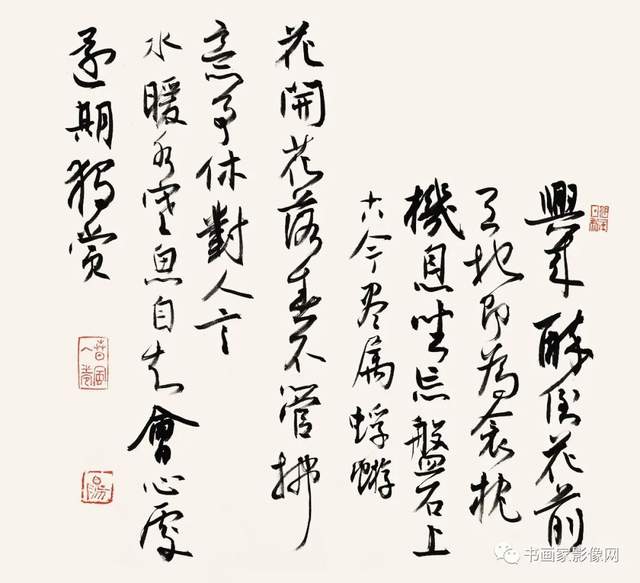 興來醉倒花前
天地即為衾枕
機息坐忘盤石上
古今尽属蜉蝣
花開花落春不管拂
意事休對人言
水暖水寒魚自知會心處
還期獨賞
书画家影像网